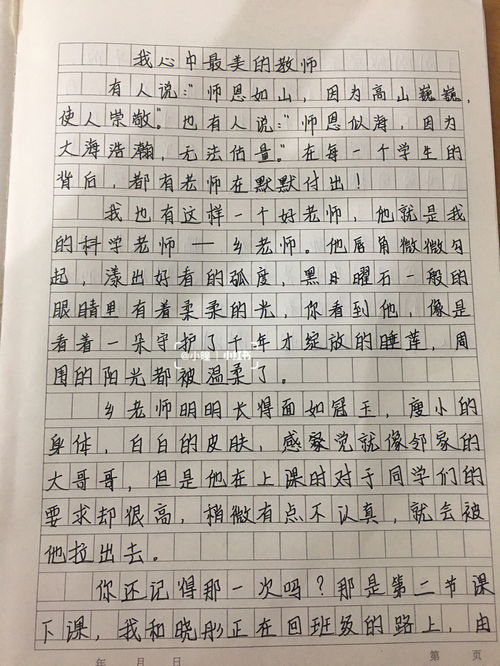 我心中最美的教师
有人说："师恩如山，因为高山巍巍，
使人崇敬。"也有人说："师恩似海，因为
大海浩瀚，无法估量。"在每一个学生的
背后，都有老师在默默付出！
我也有这样一个好老师，他就是我
的科学老师——乡老师。他唇角微微勾
起，漾出好看的弧度，黑日曜石一般的
眼睛里有着柔柔的光，你看到他，像是
看着一朵守护了千年才绽放的睡莲，周
围的阳光都被温柔了。
@小曈 | 小红书
乡老师明明长得面如冠玉，瘦小的
身体，白白的皮肤，感觉就像邻家的
大哥哥，但是他在上课时对于同学们的
要求却很高，稍微有点不认真，就会被
他拉出去。
你还记得那一次吗？那是第二节课
下课，我和晓彤正在回班级的路上，由
年 月 日 第 页